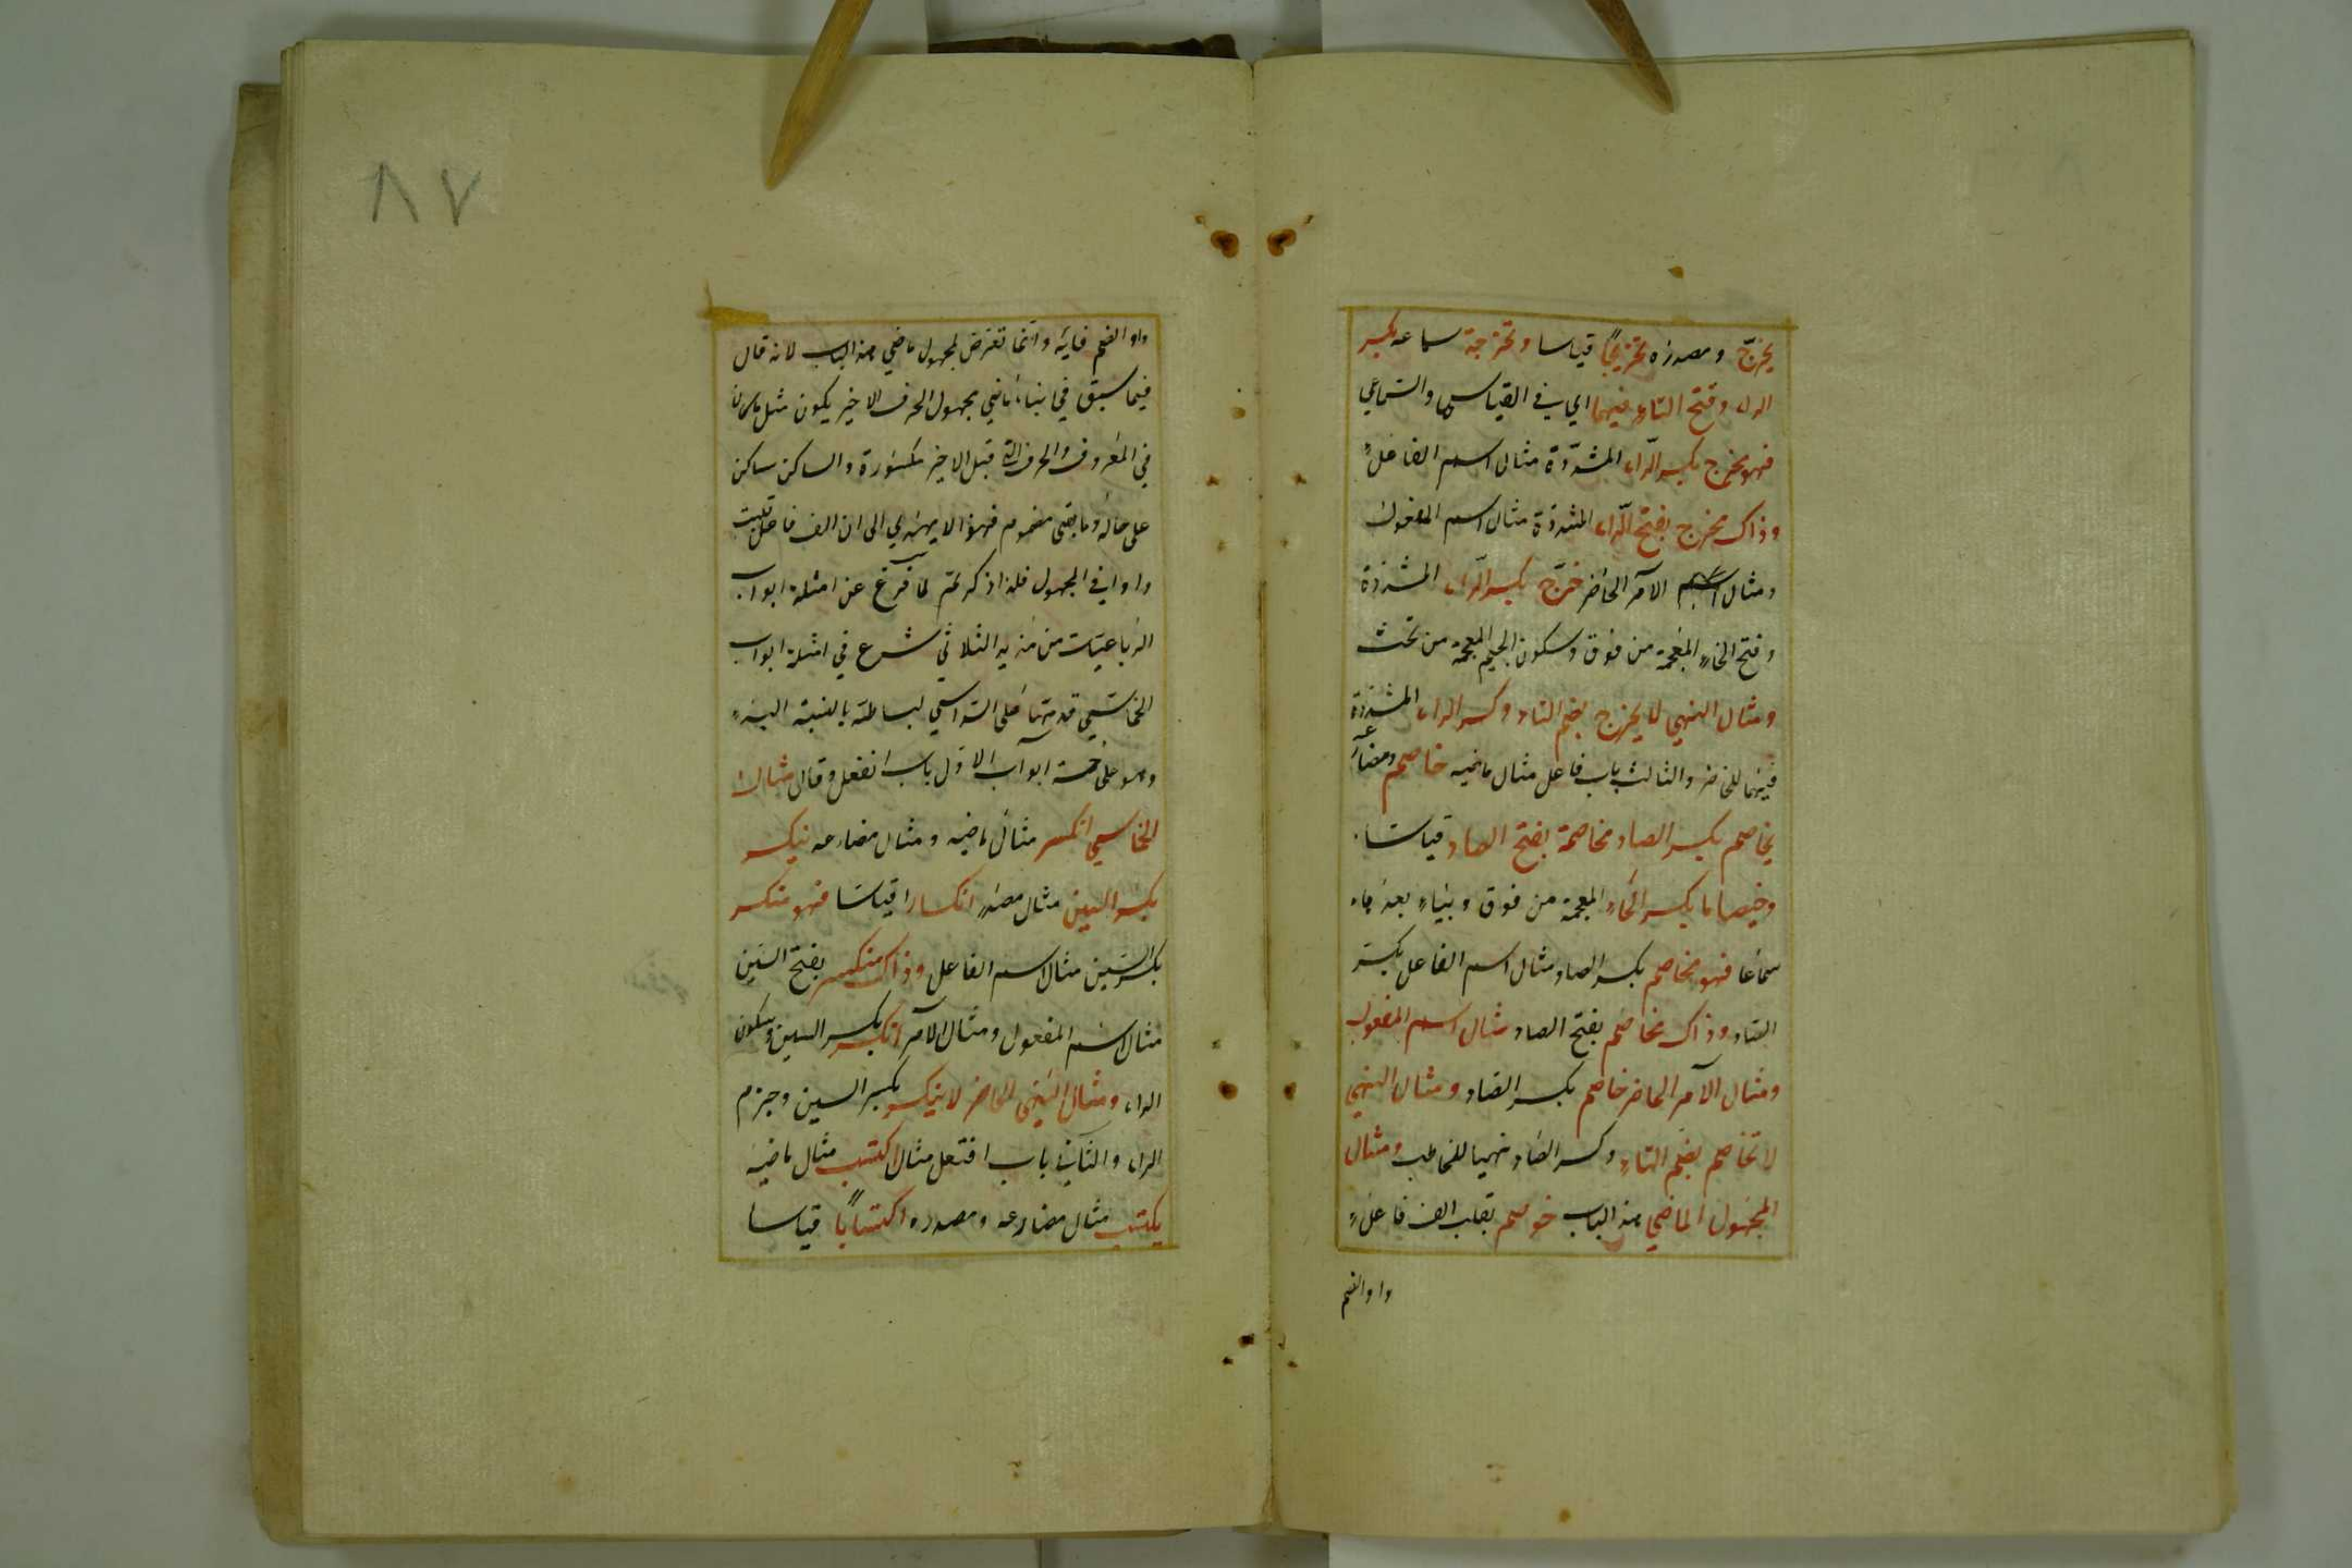 يخرّج ومصدره تخريجًا قياسا وتخرجة سماعه بكسر
الراء وفتح التاء فيهما اي في القياس والسّماعي
فهو مخرج بكسر الرّاء المشدّدة مثال اسم الفاعل
وذاك مخرج بفتح الرّاء المشدّدة مثال اسم المفعول
ومثال الامر الحاضر خرّج بكسر الرّاء المشدّدة
وفتح الخاء المعجمة من فوق وسكون الجيم المعجمة من تحت
ومثال النهي لا يخرج بضم التاء وكسر الراء المشدّدة
فيهما للحاضر والثالث باب فاعل مثال ماضيه خاصم ومضارعه
يخاصم بكسر الصاد مخاصمة بفتح الصاد قياسا
وخيصاما بكسر الخاء المعجمة من فوق وبياء بعد
سماعا فهو مخاصم بكسر الصاد مثال اسم الفاعل بكسر
الصاد وذاك مخاصم بفتح الصاد مثال اسم المفعول
ومثال الامر الحاضر خاصم بكسر الصاد ومثال النهي
لا تخاصم بضم التاء وكسر الصاد نهيا للمخاطب ومثال
المجهول الماضي من الباب خوصم بقلب الف فاعل
واو الضم
٨٧
واو الضم فائه وانما تعرض لمجهول ماضي من الباب لانه قال
فيما سبق في بناء ماضي مجهول الحرف الاخير يكون مثل ما كان
في المعروف والحرف الذي قبل الاخير مكسورة والساكن ساكن
على حاله وما بقى مضموم فهذا لا يهتدي الى ان الف فاعل قلبت
واوا في المجهول فلذا ذكر ثم لما فرغ عن امثلة ابواب
الرباعيات من مزيد الثلاثي شرع في امثلة ابواب
الخماسي قدمها على السداسي لبساطته بالنسبة اليه
وهو على خمسة ابواب الاول باب انفعل وقال مثال
الخماسي انكسر مثال ماضيه ومثال مضارعه ينكسر
بكسر السين مثال مصدر انكسارا قياسا فهو منكسر
بكسر السّين مثال اسم الفاعل وذاك منكسر بفتح السّين
مثال اسم المفعول ومثال الامر انكسر بكسر السين وسكون
الراء ومثال النهي الحاضر لا ينكسر بكسر السين وجزم
الراء والثاني باب افتعل مثال اكتسب مثال ماضيه
يكتسب مثال مضارعه ومصدره اكتسابًا قياسا